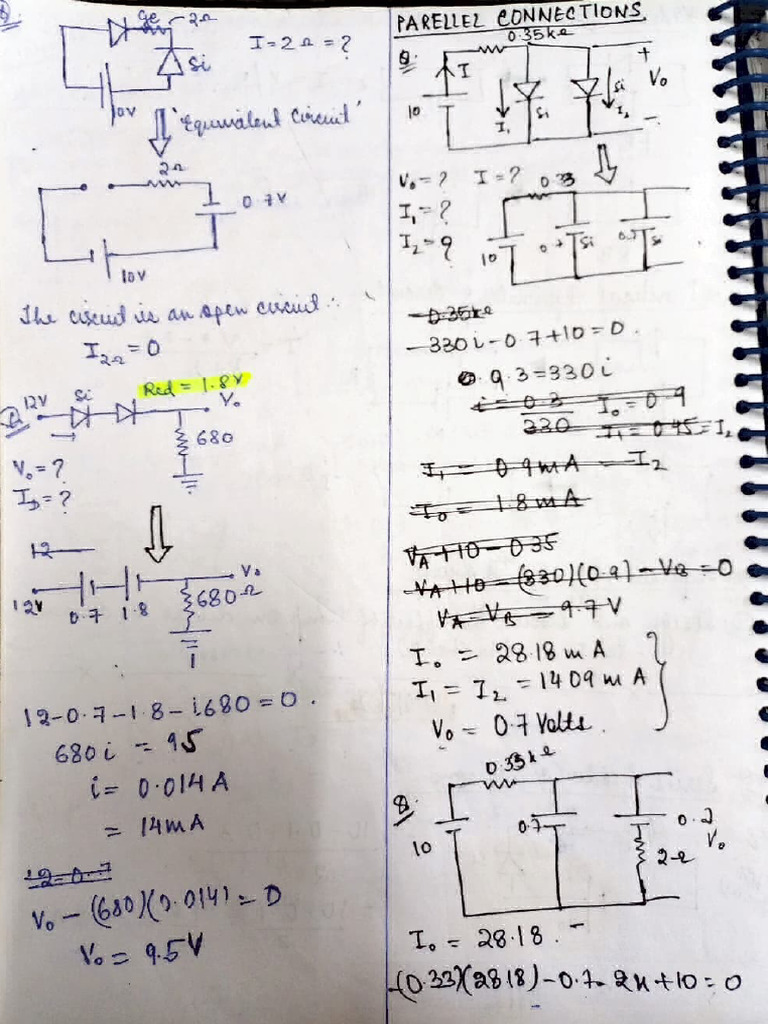 Ge 2Ω
I = 2Ω = ?
Si
10V
"Equivalent Circuit"
2Ω
0.7V
10V
The circuit is an open circuit.
I2Ω = 0
Q 12V Si Red = 1.8V V₀
680
V₀ = ?
I_D = ?
12
12V 0.7 1.8 680Ω V₀
12-0.7-1.8-i680=0.
680i = 95
i = 0.014A
= 14mA
12-0.7
V₀ - (680)(0.014) = 0
V₀ = 9.5V
PARELLEL CONNECTIONS.
Q. 0.35kΩ
+
I V₀
10 I₁ Si Si I₂
-
V₀ = ? I = ? 0.33
I₁ = ?
I₂ = ?
10 0.7 Si 0.7 Si
0.35kΩ
-330i-0.7+10=0.
9.3=330i
i = 0.3 I₀ = 0.9
330 I₁ = 0.45 = I₂
I₁ = 0.9mA = I₂
I₀ = 1.8mA
VA+10-0.35
VA+10-(330)(0.9)-VB=0
VA-VB = 9.7V
I₀ = 28.18mA
I₁ = I₂ = 1409mA
V₀ = 0.7 Volts.
Q. 0.33kΩ
10 0.7 0.2
V₀
2Ω
I₀ = 28.18.
-(0.33)(28.18)-0.7-2x+10=0